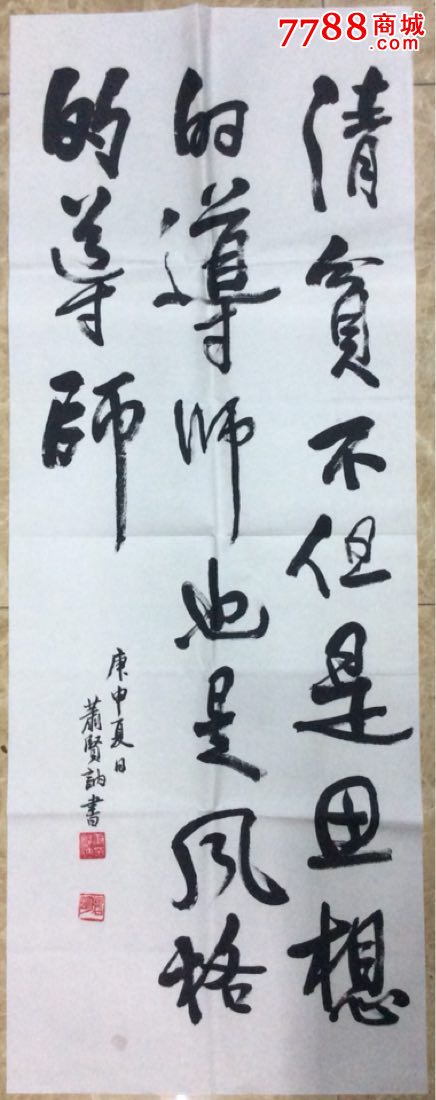 7788商城
.com
清貧不但是思想
的導師也是风格
的導師
庚申夏日
蕭賢訥書